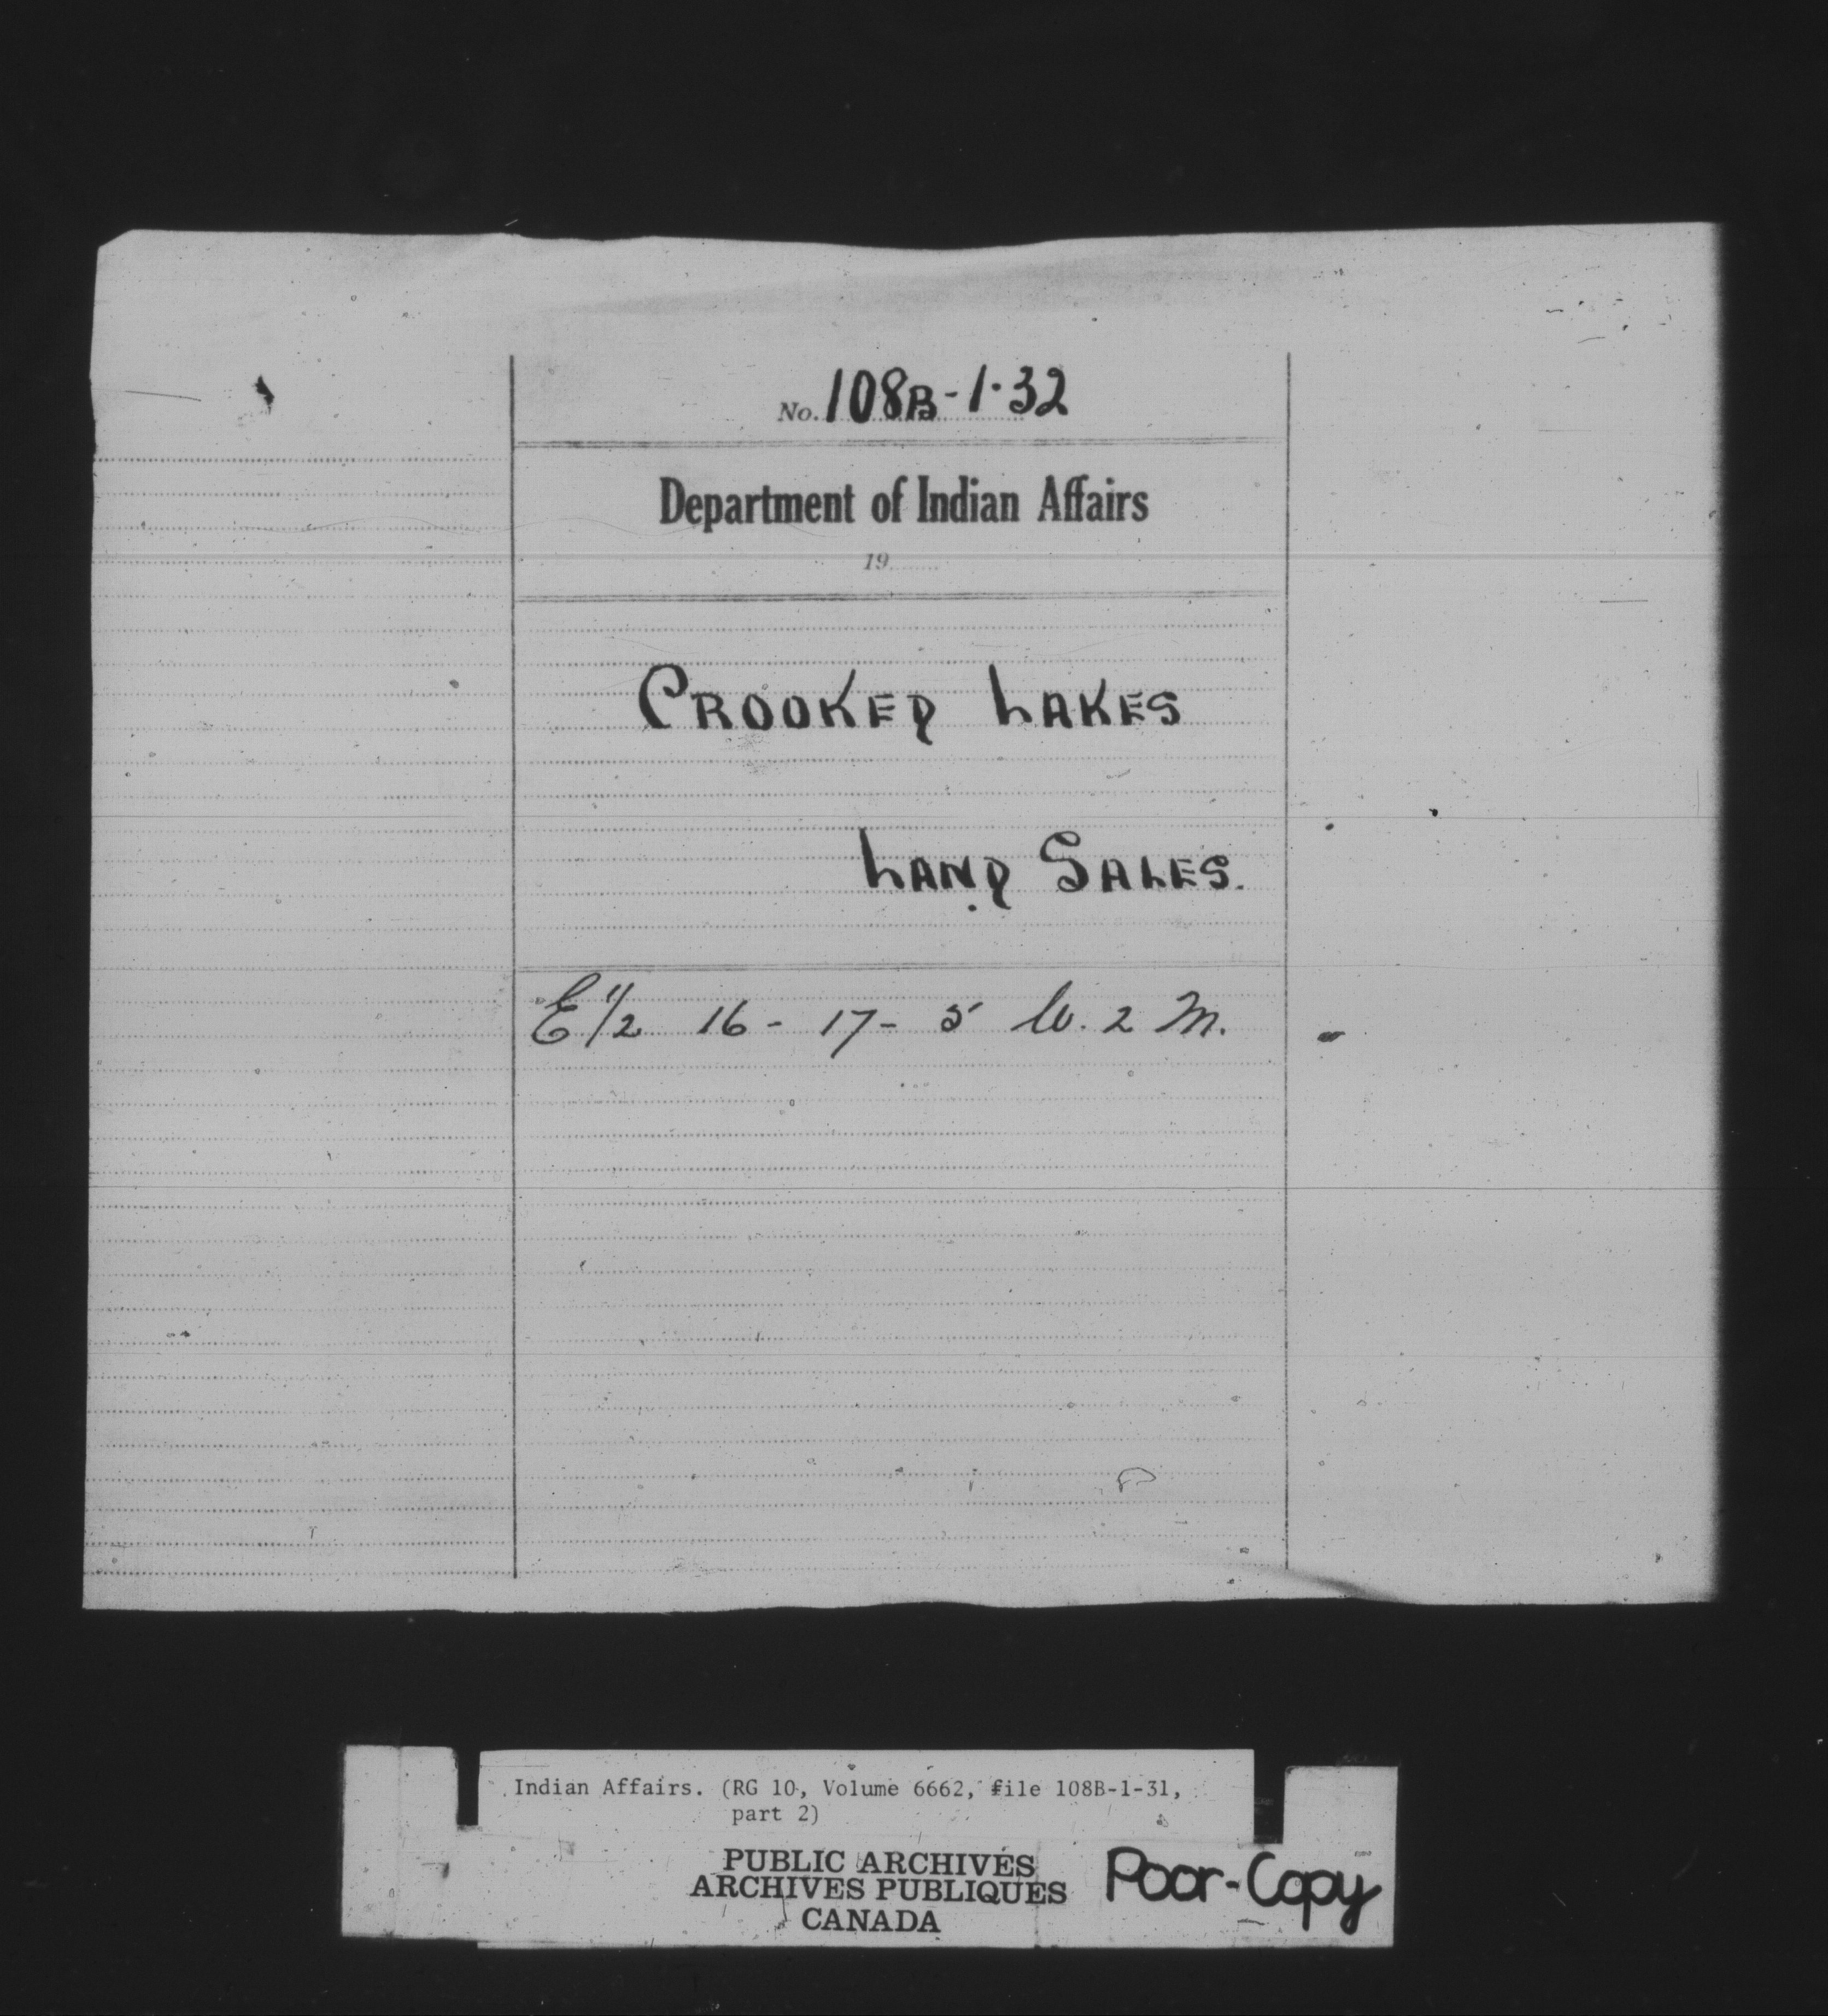 No. 108B-1-32
Department of Indian Affairs
19
CROOKED LAKES
LAND SALES.
E 1/2 16 - 17 - 5 W. 2 M.
Indian Affairs. (RG 10, Volume 6662, file 108B-1-31,
part 2)
PUBLIC ARCHIVES
ARCHIVES PUBLIQUES
CANADA
Poor-Copy